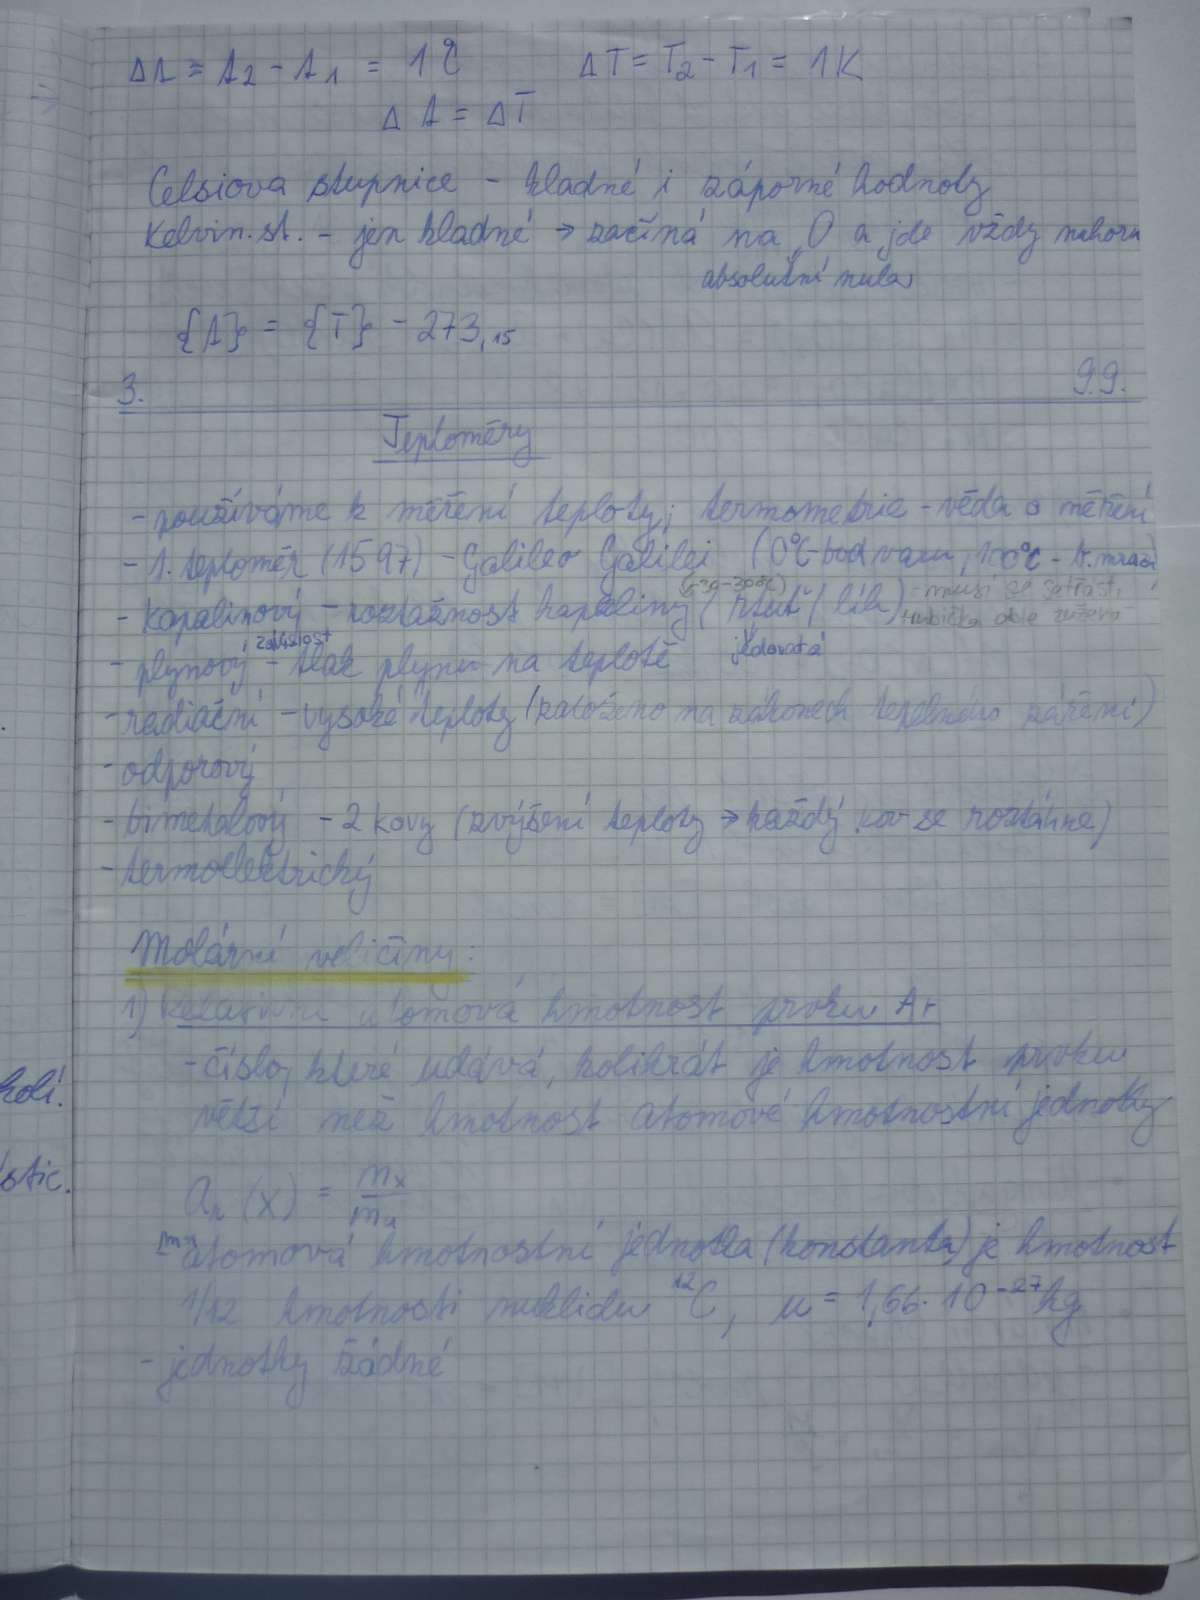 Δt = t₂ - t₁ = 1°C ΔT = T₂ - T₁ = 1K
Δt = ΔT
Celsiova stupnice - kladné i záporné hodnoty
Kelvin. st. - jen kladné → začíná na 0 a jde vždy nahoru
absolutní nula
{t} = {T} - 273,15
3. 9.9.
Teploměry
- používáme k měření teploty; termometrie - věda o měření
- 1. teploměr (1597) - Galileo Galilei (0°C - bod varu, 100°C - t. mrazu)
(-30-300°C) - musí se setřást,
- kapalinový - roztažnost kapaliny (rtuť / líh) trubička dole zúžená
závislost
- plynový - tlak plynu na teplotě jedovatá
- radiační - vysoké teploty (založeno na zákonech tepelného záření)
- odporový
- bimetalový - 2 kovy (zvýšení teploty → každý kov se roztáhne)
- termoelektrický
Molární veličiny:
1) Relativní atomová hmotnost prvku Ar
- číslo, které udává, kolikrát je hmotnost prvku
větší než hmotnost atomové hmotnostní jednotky
ar (x) = mx / mu
mu atomová hmotnostní jednotka (konstanta) je hmotnost
1/12 hmotnosti nuklidu ¹²C, u = 1,66 · 10⁻²⁷ kg
- jednotky žádné
kolí.
ístic.